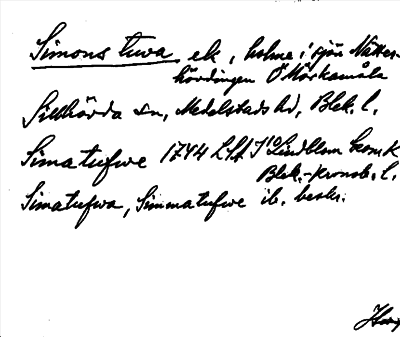 Simons tuva ek., holme i sjön Nätter-
hövdingen Ö Mörkamåla
Sillhövda sn, Medelstads hd, Blek. l.
Simatufwe 1744 LSA J10 Lindblom Geom. K
Blek.-Kronob. l.
Simatufwa, Simmatufwe ib. beskr.